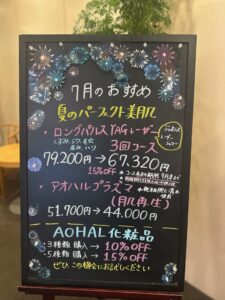 7月のおすすめ
夏のパーフェクト美肌
・ロングパルスYAGレーザー
くすみ、シワ、毛穴
3回コース
79.200円→67.320円
15%OFF
・アオハルプラズマ
(肌再生)
51.700円→44.000円
AOHAL化粧品
3種類購入→10%OFF
5種類購入→15%OFF
ぜひこの機会にお試しください